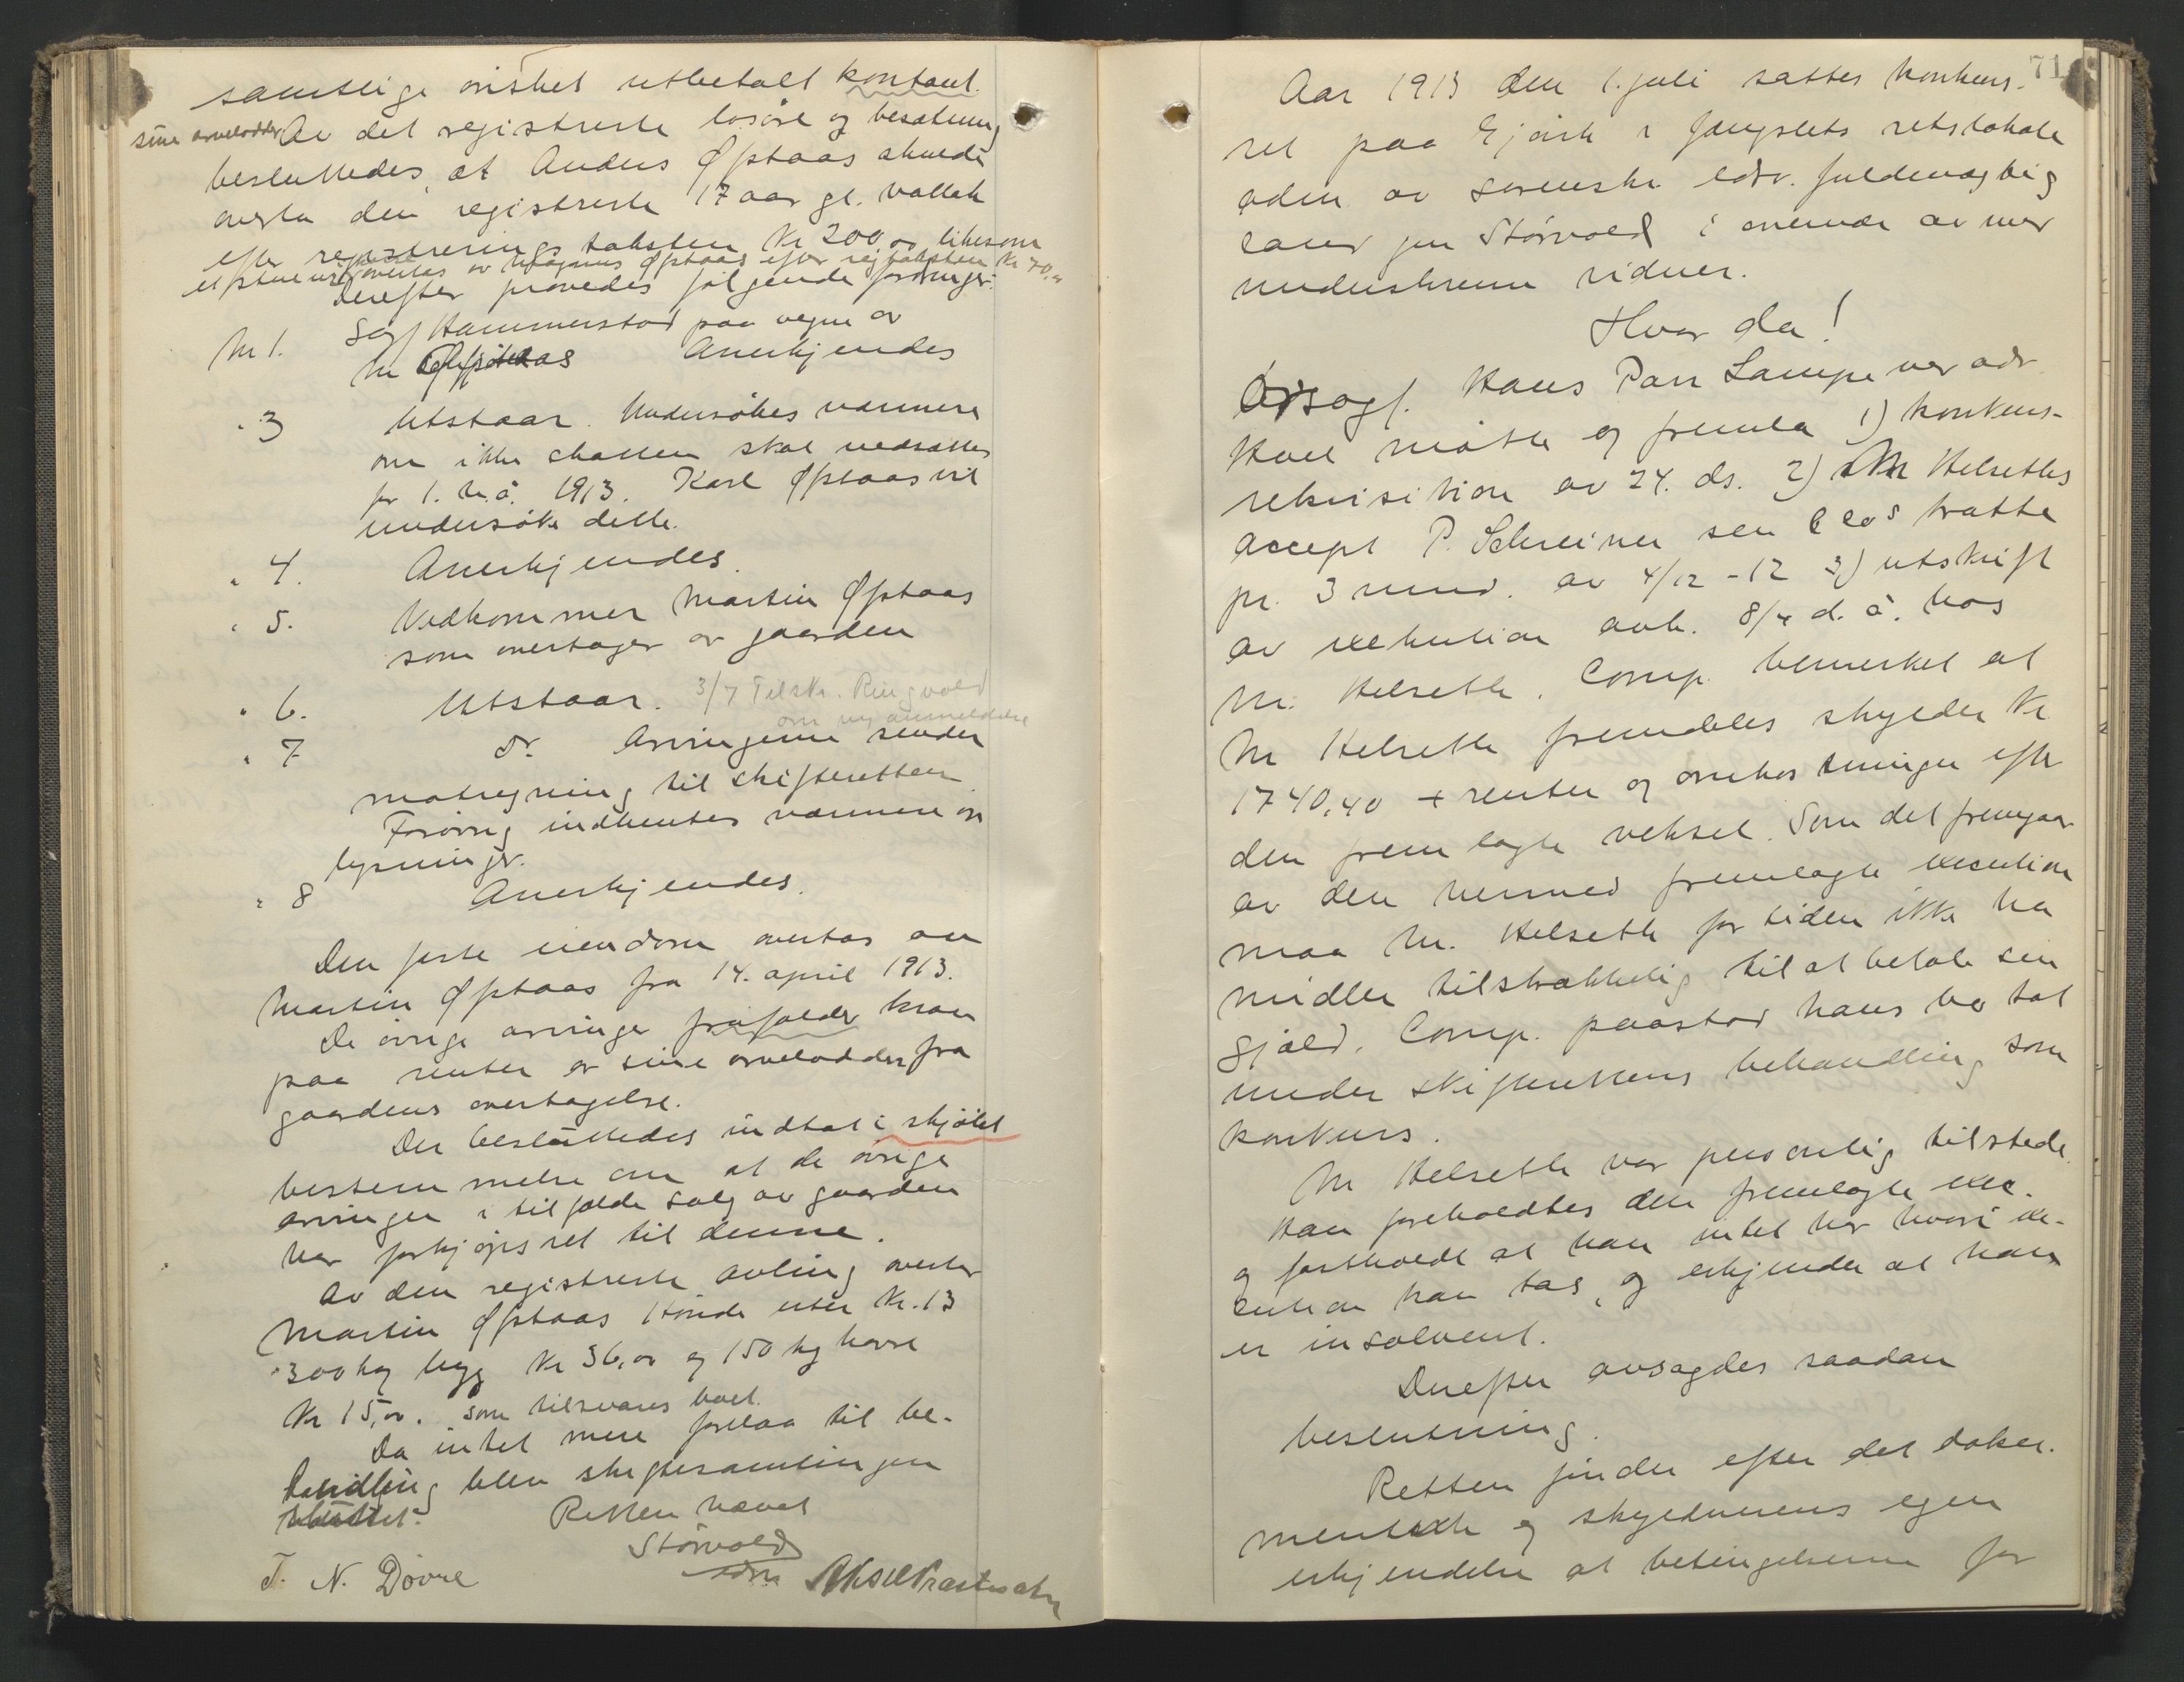 samtlige ønsket utbetalt kontant.
sine arvelodder Av det registrerte løsøre og besætning
besluttedes, at Anders Øfstaas skulde
overta den registrerte 17 aar gl. vallak
efter registreringstaksten Kr 200,00 likesom
overtas av Magnus Øfstaas efter regtaksten Kr 70.00
Derefter prøvedes følgende fordringer:
Nr 1. Sagf Hammerstad paa vegne av
M Øfstaas Anerkjendes
" 3 Utstaar. Undersøkes nærmere
om ikke skatten skal nedsættes
for 1. h.å. 1913. Karl Øfstaas vil
undersøke dette.
" 4. Anerkjendes.
" 5. Vedkommer Martin Øfstaas
som overtager av gaarden
" 6. Utstaar. 3/7 Tilskr. Ringvold
om ny anmeldelse
" 7 do. Arvingerne sender
motregning til skifteretten
Forøvrig indhentes nærmere op
lysninger.
" 8 Anerkjendes.
Den faste eiendom overtas av
Martin Øfstaas fra 14. april 1913.
De øvrige arvinger frafalder krav
paa renter av sine arvelodder fra
gaardens overtagelse.
Der besluttedes indtat i skjøtet
bestemmelse om at de øvrige
arvinger i tilfælde salg av gaarden
har forkjøpsret til denne.
Av den registrerte avling overtar
Martin Øfstaas 1 tønde erter Kr. 13
300 kg bygg Kr 36,00 og 150 kg havre
Kr 15,00. som tilsvares boet.
Da intet mere forelaa til be-
handling blev skiftesamlingen
sluttet.
Retten hævet
Størvold
edsv.
T. N. Døvre
71
Aar 1913 den 1. juli sattes konkurs-
ret paa Gjøvik i fængslets retslokale
aden av sorenskr. edsv. fuldmægtig
cand jur Størvold i overvær av vær
underskrevne vidner.
Hvor da!
Ovrsagf. Hans Parr Lampe ver adv.
Hoel møtte og fremla 1) konkurs-
rekvisition av 24. ds. 2) M Helseths
accept P. Schreiner sen & Cos tratte
pr. 3 mnd. av 4/12 - 12 3) utskrift
av exekution avh. 8/4 d. å. hos
M. Helseth. Comp. bemerket at
M Helseth fremdeles skylder Kr
1740,40 + renter og omkostninger efter
den fremlagte veksel. Som det fremgaar
av den hermed fremlagte execution
maa M. Helseth for tiden ikke ha
midler tilstrækkelig til at betale sin
gjæld. Comp. paastod hans bo tat
under skifterettens behandling som
konkurs.
M Helseth var personlig tilstede.
Han foreholdtes den fremlagte exe.
og fastholdt at han intet har hvori exe-
cution kan tas, og erkjender at han
er insolvent.
Derefter avsagdes saadan
beslutning.
Retten finder efter det doku-
menterte og skyldnerens egen
erkjendelse at betingelserne for